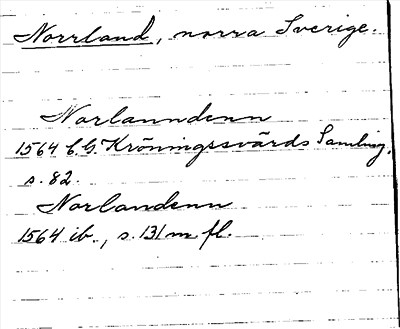 Norrland, norra Sverige.
Norlanndenn
1564 C. G. Kröningssvärds Samling,
s. 82.
Norlandenn
1564 ib., s. 131 m fl.